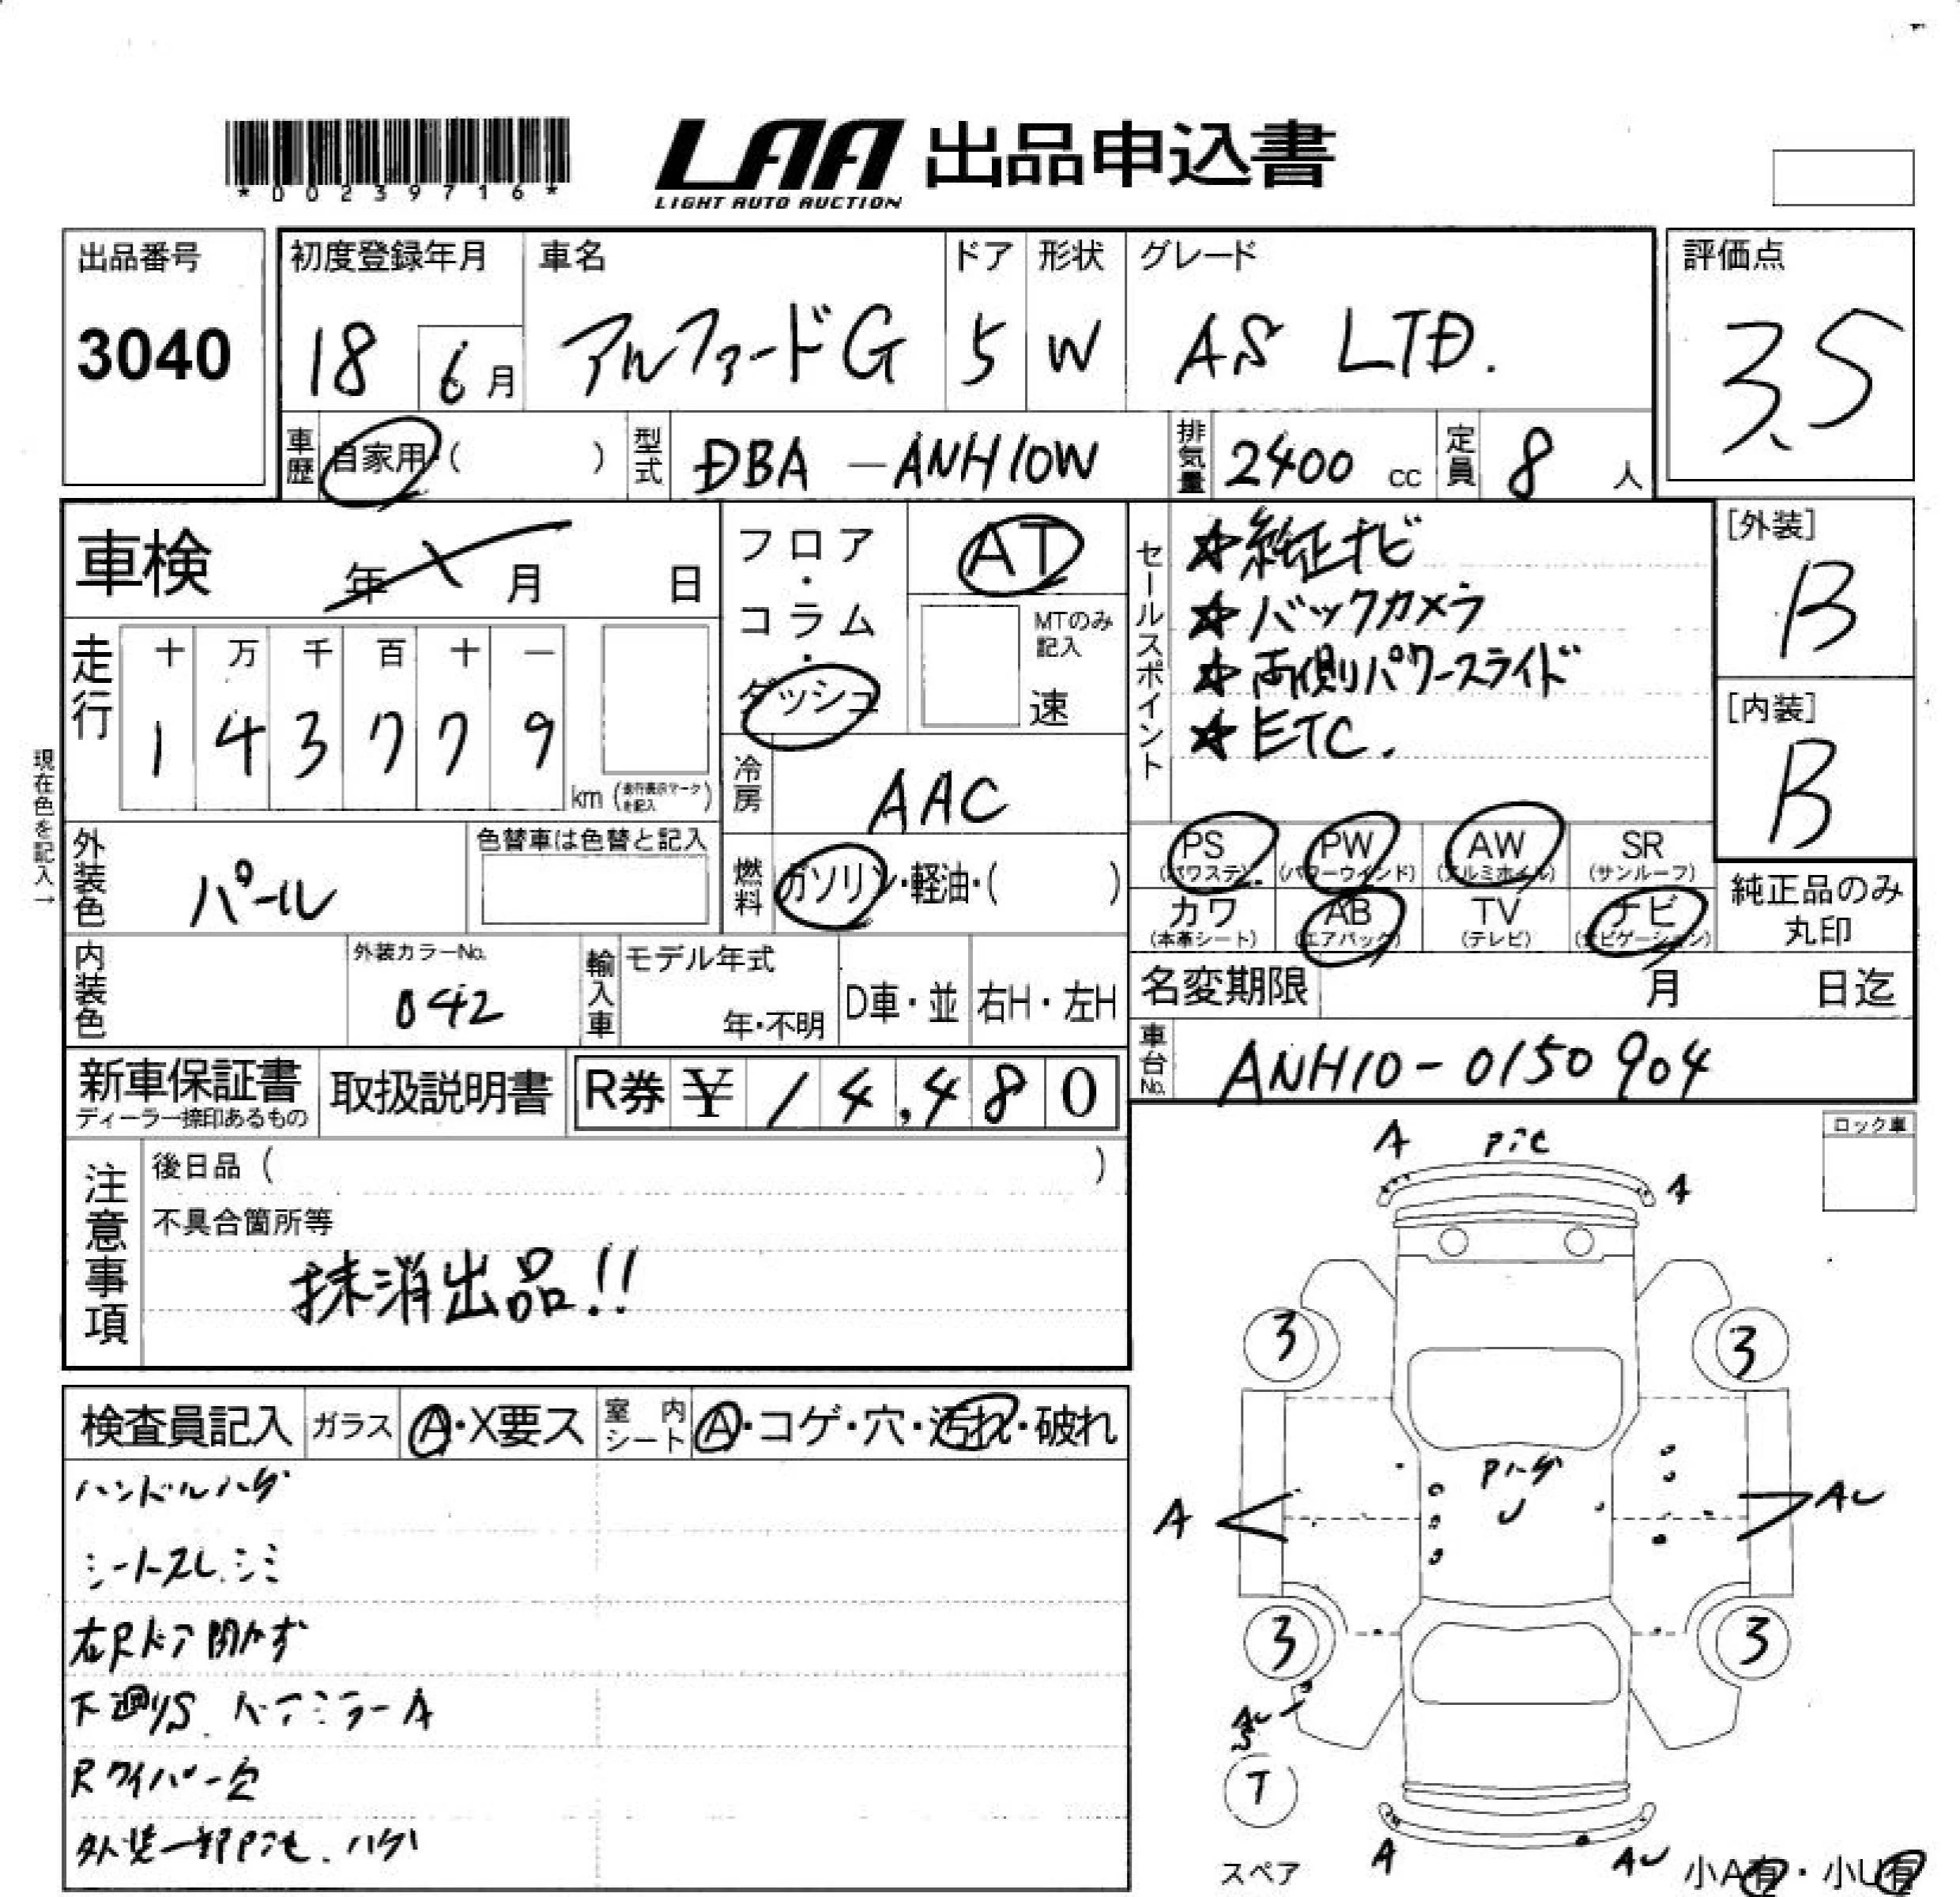 *00239716*
LAA 出品申込書
LIGHT AUTO AUCTION
出品番号
3040
初度登録年月
18 6月
車名
アルファードG
ドア
5
形状
W
グレード
AS LTD.
評価点
3.5
車歴 自家用・( )
型式 DBA-ANH10W
排気量 2400 cc
定員 8 人
車検 年 月 日
フロア・コラム・ダッシュ
AT
MTのみ記入
速
セールスポイント
☆純正ナビ
☆バックカメラ
☆両側パワースライド
☆ETC.
[外装]
B
[内装]
B
走行
十 万 千 百 十 一
1 4 3 7 7 9
km (走行表示マークを記入)
現在色を記入→
冷房 AAC
外装色 パール
色替車は色替と記入
燃料 ガソリン・軽油・( )
PS (パワステ) PW (パワーウインド) AW (アルミホイル) SR (サンルーフ)
カワ (本革シート) AB (エアバック) TV (テレビ) ナビ (ナビゲーション)
純正品のみ丸印
内装色
外装カラーNo.
042
輸入車
モデル年式
年・不明
D車・並
右H・左H
名変期限 月 日迄
車台No. ANH10-0150904
新車保証書
ディーラー捺印あるもの
取扱説明書
R券 ¥ 14,480
注意事項
後日品 ( )
不具合箇所等
抹消出品!!
ロック車
検査員記入 ガラス A・X要ス 室内シート A・コゲ・穴・汚れ・破れ
ハンドルハゲ
シートスレ.シミ
右Rドア開かず
下廻りS. ドアミラーA
Rワイパー欠
外装一部P冷. ハゲ
A P冷 A
3 3
Pハゲ
U
A AU
3 3
AU
S
T
スペア
A AU
小A有・小U有